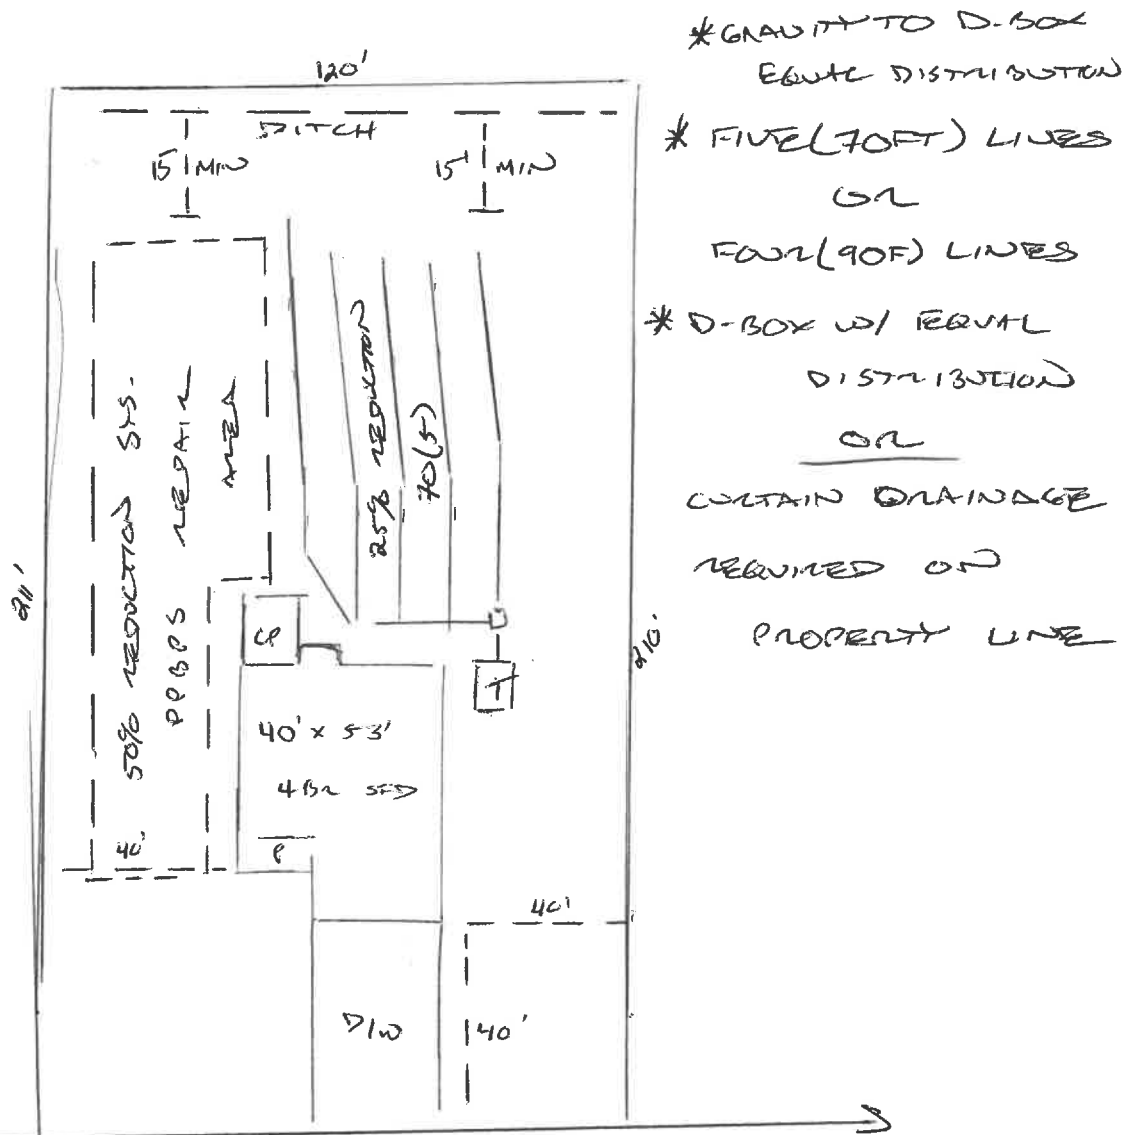 120'
DITCH
15' MIN
15' MIN
50% REDUCTION SYS.
PPBPS REPAIR
AREA
25% REDUCTION
70(5)
211'
210'
CP
T
40' x 53'
4BR SFD
P
40'
40'
40'
D/W
*GRAVITY TO D-BOX
EQUAL DISTRIBUTION
* FIVE(70FT) LINES
OR
FOUR(90F) LINES
* D-BOX W/ EQUAL
DISTRIBUTION
OR
CURTAIN DRAINAGE
REQUIRED ON
PROPERTY LINE